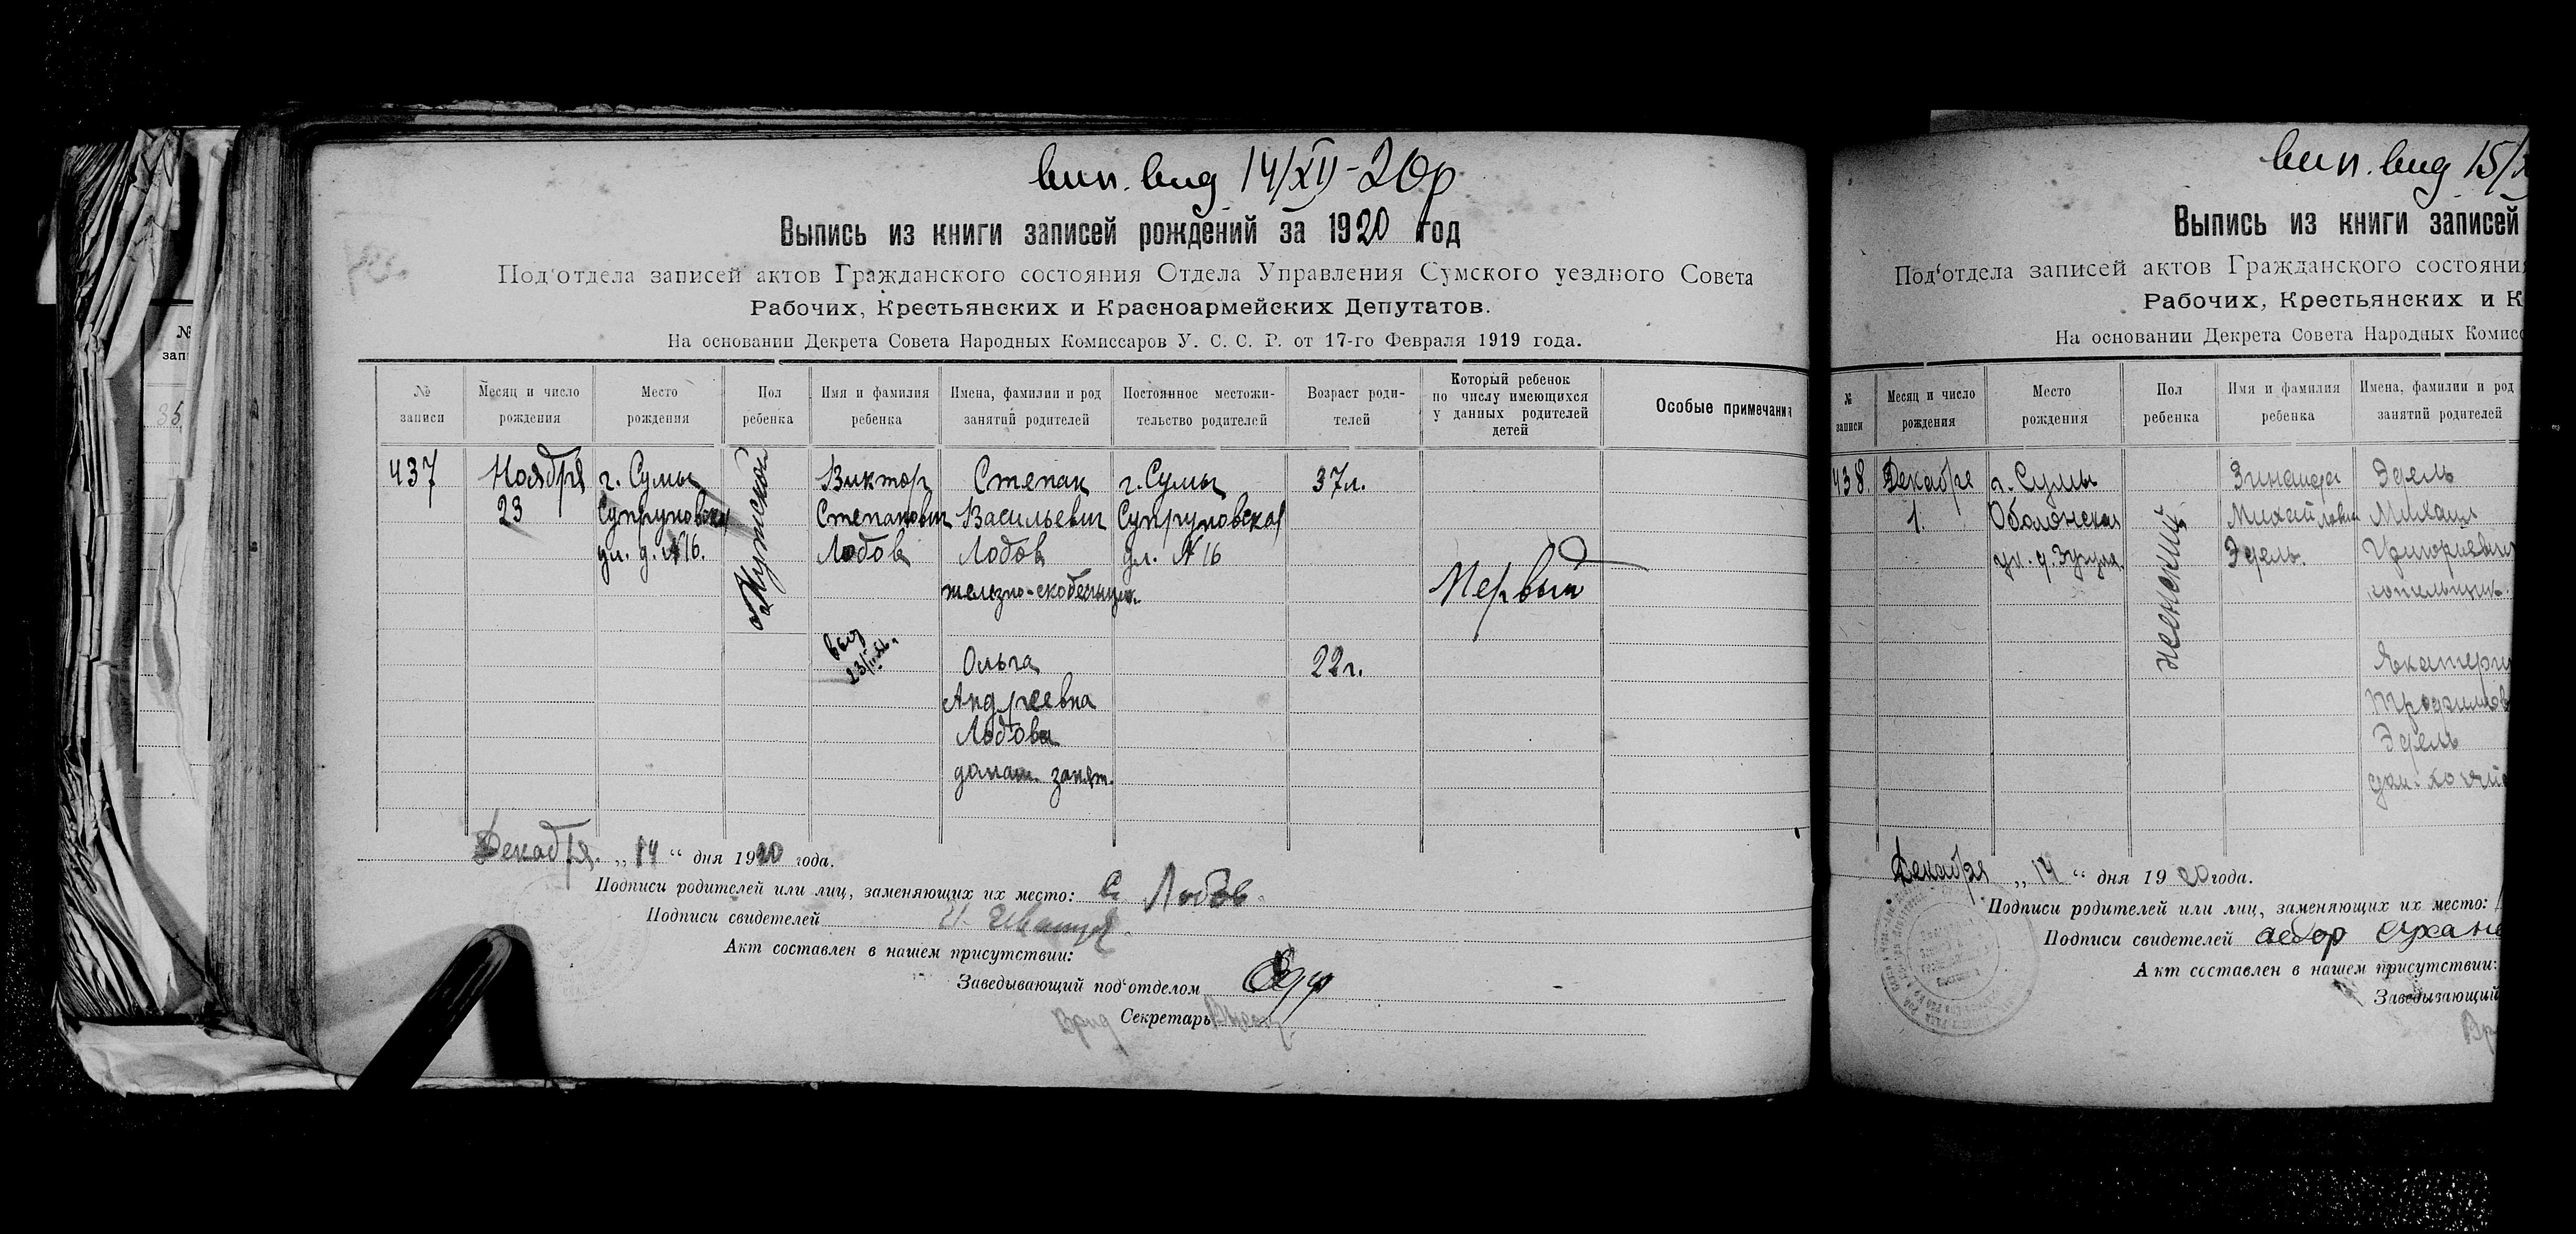 вип. вид 14/XII-20р
Выпись из книги записей рождений за 1920 год
Под‘отдела записей актов Гражданского состояния Отдела Управления Сумского уездного Совета
Рабочих, Крестьянских и Красноармейских Депутатов.
На основании Декрета Совета Народных Комиссаров У. С. С. Р. от 17-го Февраля 1919 года.
№ записи
Месяц и число рождения
Место рождения
Пол ребенка
Имя и фамилия ребенка
Имена, фамилии и род занятий родителей
Постоянное местожительство родителей
Возраст родителей
Который ребенок по числу имеющихся у данных родителей детей
Особые примечания
437
Ноября
23
г. Сумы
Супруновская
ул. д. №16.
Мужской
Виктор
Степанович
Лобов
Степан
Васильевич
Лобов
г. Сумы
Супруновская
ул. №16
37л.
Первый
Ольга
Андреевна
Лобова
домаш. занят.
22г.
Декабря „14“ дня 1920 года.
Подписи родителей или лиц, заменяющих их место: С. Лобов
Подписи свидетелей
Акт составлен в нашем присутствии:
Заведывающий под‘отделом
Врид Секретарь
№
зап
35
вип. вид 15/
Выпись из книги записей
Под‘отдела записей актов Гражданского состояни
Рабочих, Крестьянских и К
На основании Декрета Совета Народных Комисс
№ записи
Месяц и число рождения
Место рождения
Пол ребенка
Имя и фамилия ребенка
Имена, фамилии и род занятий родителей
438.
Декабря
1.
г. Сумы
Оболонская
женский
Михайловна
Эдель.
Эдель
Михаил
Григориевич
Эдель
Декабря „14“ дня 1920 года.
Подписи родителей или лиц, заменяющих их место:
Подписи свидетелей
Акт составлен в нашем присутствии:
Заведывающий
Вр